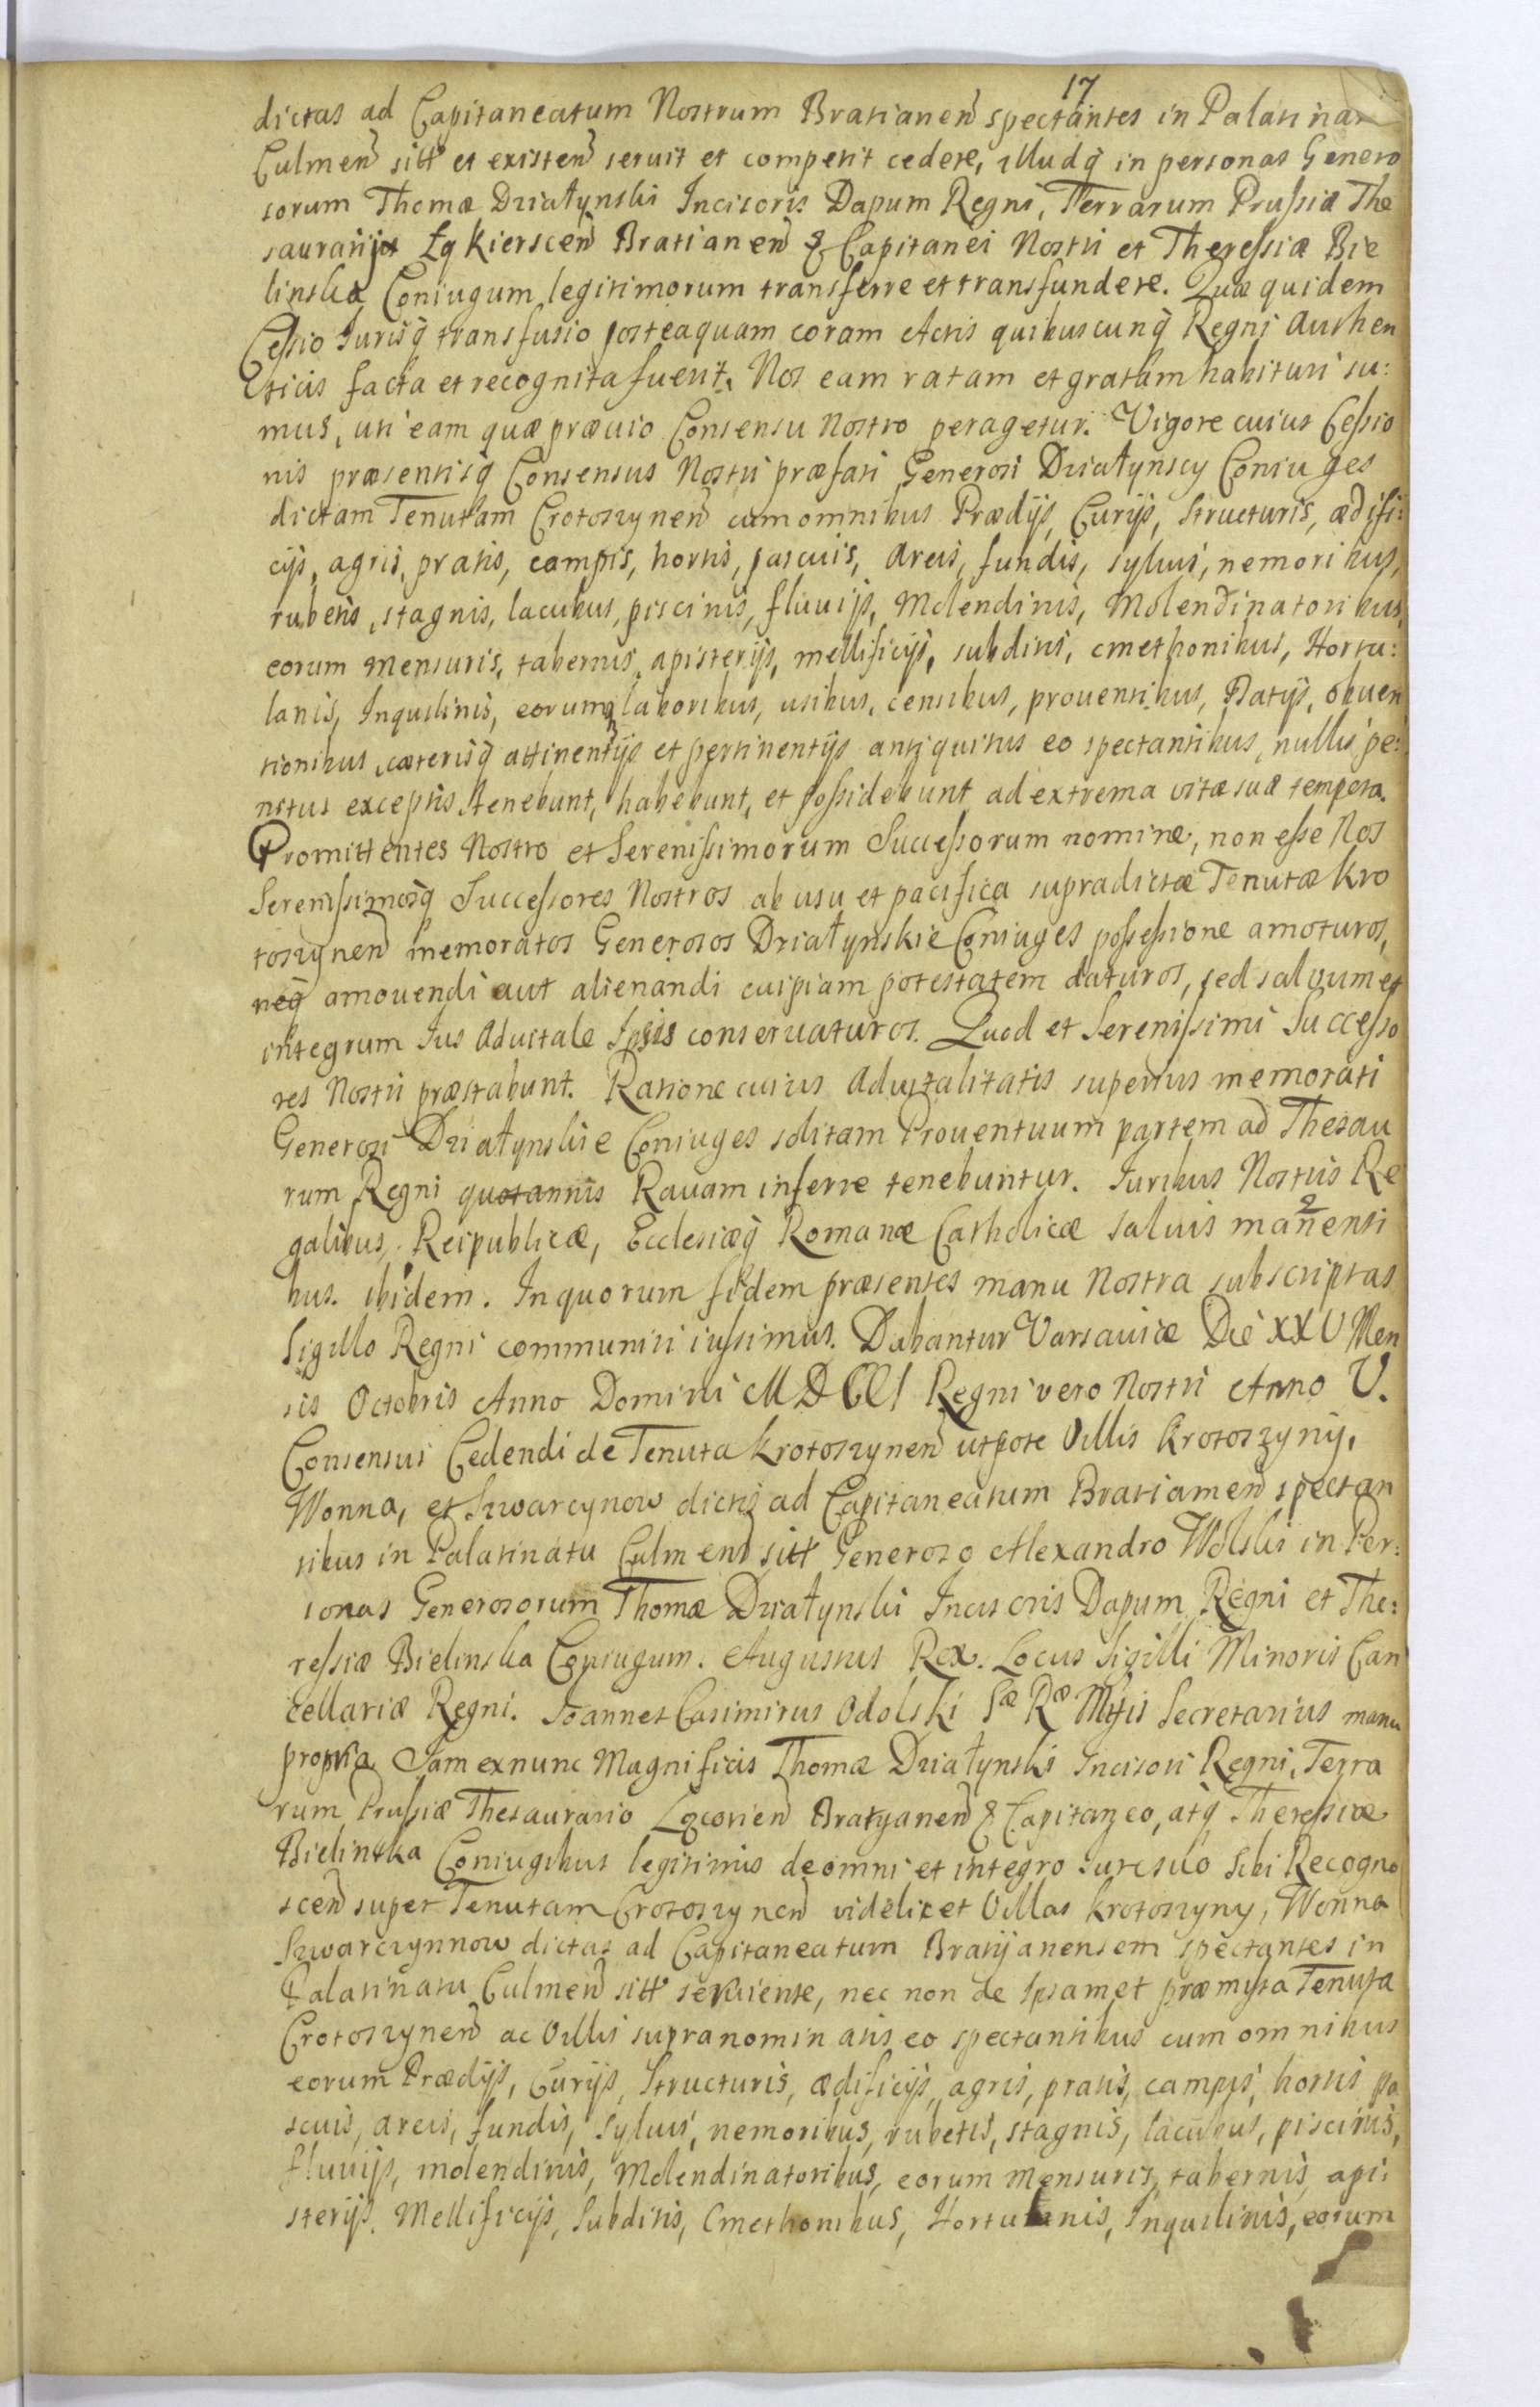 17
dictas ad Capitaneatum Nostrum Bratianen spectantes in Palatinatu
Culmen sitt et existen seruit et competit cedere, illudq in personas Genero
sorum Thomæ Działynski Incisoris Dapum Regni, Terrarum Prussiæ The
saurarij Kierscen Bratianen & Capitanei Nostri et Theressiæ Bie
linska Coniugum legitimorum transferre et transfundere. Quæ quidem
Cessio Jurisq transfusio posteaquam coram Actis quibuscunq Regni Authen
ticis facta et recognita fuerit, Nos eam ratam et gratam habituri su:
mus, uti eam quæ præuio Consensu Nostro peragetur. Vigore cuius Cessio
nis præsentisq Consensus Nostri præfati Generosi Działynscy Coniuges
dictam Tenutam Crotoszynen cum omnibus Prædijs, Curijs, Structuris, ædifi:
cijs, agris, pratis, campis, hortis, pascuis, areis, fundis, syluis, nemoribus,
rubetis, stagnis, lacubus, piscinis, fluuijs, Molendinis, Molendinatoribus,
eorum mensuris, tabernis, apisterijs, mellificijs, subditis, cmethonibus, Hortu:
lanis, Inquilinis, eorumq laboribus, usibus, censibus, prouentibus, Datijs, obuen
tionibus, cæterisq attinentijs et pertinentijs antiquitus eo spectantibus, nullis pe:
nitus exceptis tenebunt, habebunt, et possidebunt ad extrema vitæ suæ tempora.
Promittentes Nostro et Serenissimorum Successorum nomine, non esse Nos
Serenissimosq Successores Nostros ab usu et pacifica supradictæ Tenutæ Kro
toszynen memoratos Generosos Działynskie Coniuges possessione amoturos,
neq amouendi aut alienandi cuipiam potestatem daturos, sed saluum et
integrum Jus Aduitale Ipsis conseruaturos. Quod et Serenissimi Successo
res Nostri præstabunt. Ratione cuius Aduitalitatis superius memorati
Generosi Działynskie Coniuges solitam Prouentuum partem ad Thesau
rum Regni quotannis Rauam inferre tenebuntur. Juribus Nostris Re
galibus, Reipublicæ, Ecclesiæq Romanæ Catholicæ saluis manenti
bus. ibidem. In quorum fidem præsentes manu Nostra subscriptas
Sigillo Regni communiri iussimus. Dabantur Varsauiæ Die XXV Men
sis Octobris Anno Domini MDCCI Regni vero Nostri Anno V.
Consensus Cedendi de Tenuta Krotoszynen utpote Villis Krotoszyny,
Wonna, et Szwarcynow dictis ad Capitaneatum Bratiamen spectan
tibus in Palatinatu Culmen sitt Generoso Alexandro Wolski in Per:
sonas Generosorum Thomæ Działynski Incisoris Dapum Regni et The:
ressiæ Bielinska Coniugum. Augustus Rex. Locus Sigilli Minoris Can
cellariæ Regni. Joannes Casimirus Odolski Sæ Ræ Mttis Secretarius manu
propria. Jam ex nunc Magnificis Thomæ Działynski Incisori Regni, Terra
rum Prussiæ Thesaurario Bratyanen & Capitaneo, atq Theressiæ
Bielinska Coniugibus legitimis de omni et integro Jure suo Sibi Recogno
scen super Tenutam Crotoszynen videlicet Villas Krotoszyny, Wonna
Szwarczynnow dictas ad Capitaneatum Bratijanensem spectantes in
Palatinatu Culmen sitt seruiente, nec non de Ipsamet præmissa Tenuta
Crotoszynen ac Villis supranominatis eo spectantibus cum omnibus
eorum Prædijs, Curijs, Structuris, ædificijs, agris, pratis, campis, hortis pa
scuis, areis, fundis, Syluis, nemoribus, rubetis, stagnis, lacubus, piscinis,
fluuijs, molendinis, Molendinatoribus, eorum mensuris, tabernis, api:
sterijs, Mellificijs, Subditis, Cmethonibus, Hortulanis, Inquilinis, eorum